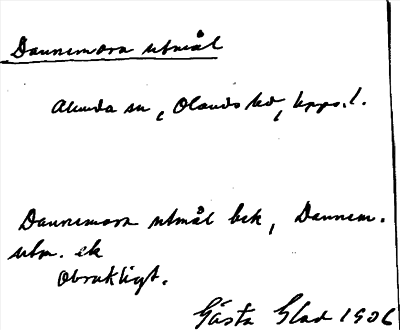 Dannemora utmål
Alunda sn, Olands hd, Upps. l.
Dannemora utmål bek, Dannem.
utm. ek
Obrukligt.
Gösta Glad 1906